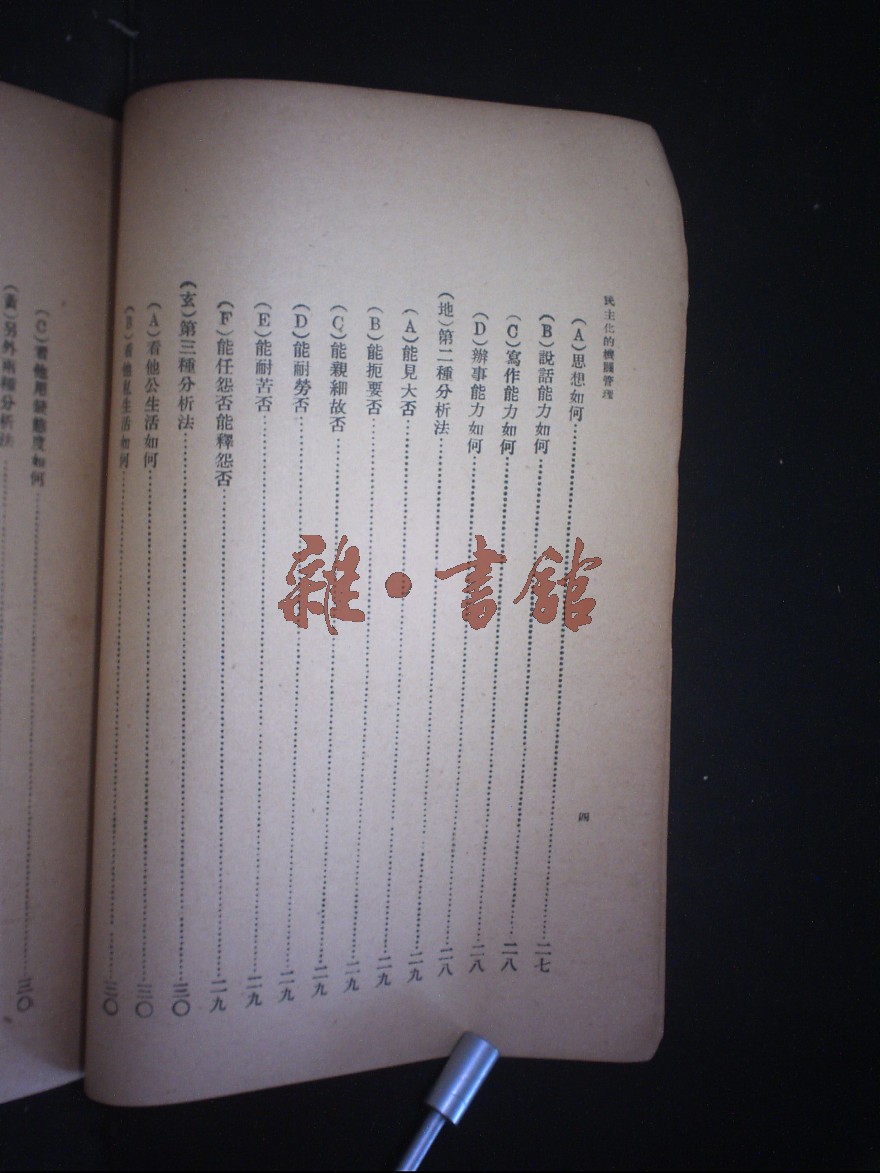 民主化的機關管理
四
(A)思想如何……二七
(B)說話能力如何……二八
(C)寫作能力如何……二八
(D)辦事能力如何……二八
(地)第二種分析法……二九
(A)能見大否……二九
(B)能扼要否……二九
(C)能親細故否……二九
(D)能耐勞否……二九
(E)能耐苦否……二九
(F)能任怨否能釋怨否……二九
(玄)第三種分析法……三〇
(A)看他公生活如何……三〇
(B)看他私生活如何……三〇
(C)看他用錢態度如何……三〇
(黃)另外兩種分析法……
雜·書館